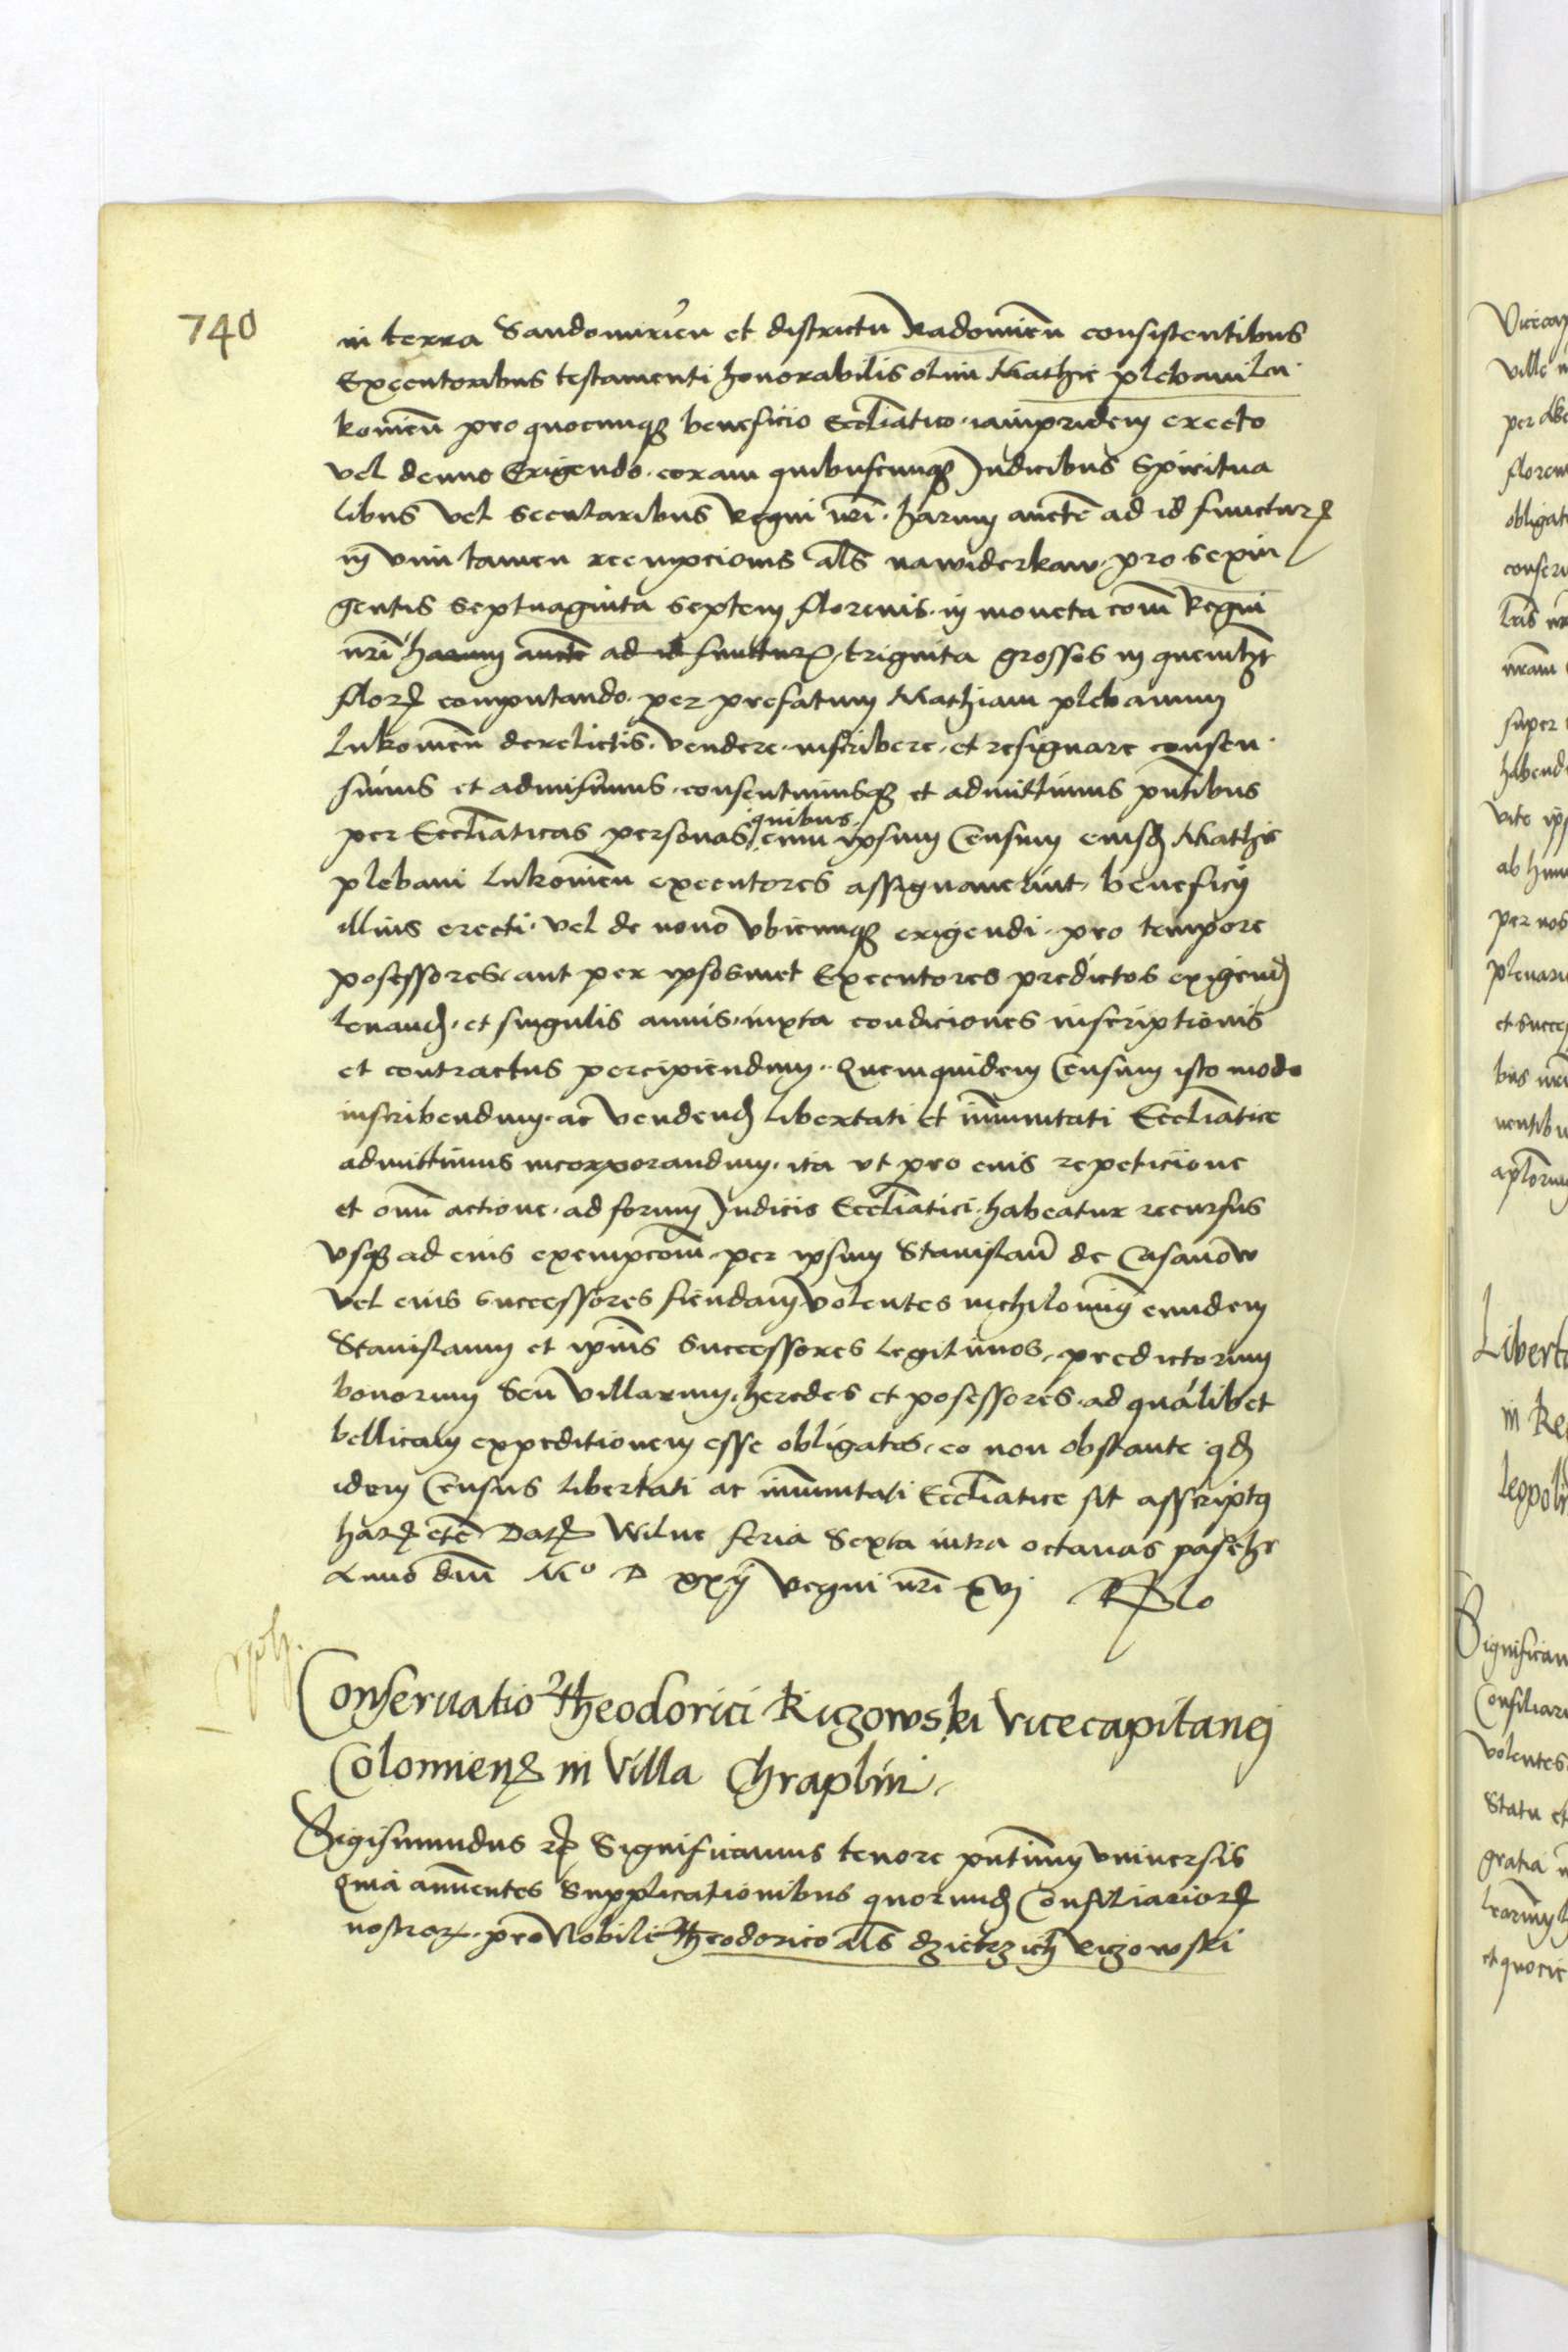 740
in terra Sandomirien et districtu Radomien consistentibus
Executoribus testamenti honorabilis olim Mathie plebani Lu
komien pro quocunq beneficio Eccliatico iampridem erecto
vel denuo Erigendo coram quibuscunq Iudicibus Spiritua
libus vel secularibus Regni nri harum aucte ad id functur
in vim tamen reempcionis als na widerkaw pro sexin
gentis septuaginta septem florenis in moneta com Regni
nri harum aucte ad id functur triginta grossos in quemlibet
flor computando per prefatum Mathiam plebanum
Lukomien derelictis vendere inscribere et resignare consen
simus et admisimus consentimusq et admittimus pntibus
quibus
per Eccliaticas personas cum ipsum Censum eiusd Mathie
plebani Lukomien executores assignauerint beneficij
illius erecti vel de nouo vbicunq erigendi pro tempore
posessores aut per ipsosmet Executores predictos exigend
leuand et singulis annis iuxta condiciones inscriptionis
et contractus percipiendum Quemquidem Censum isto modo
inscribendum ac vendend libertati et immunitati Eccliatice
admittimus incorporandum ita vt pro eius repeticione
et omni actione ad forum Iudicis Eccliatici habeatur recursus
vsq ad eius exempcom per ipsum Stanislau de Casanow
vel eius successores fiendam volentes nichilominus eundem
Stanislaum et ipius successores legitimos predictorum
bonorum Seu villarum heredes et posessores ad qualibet
bellicam expeditionem esse obligatos eo non obstante qd
idem Census libertati ac immunitati Eccliatice sit asscriptus
har etc Dat Wilne feria Sexta intra octauas pasche
Anno dni Mo D xxij Regni nri xvj
Conseruatio Theodorici Rigowski Vicecapitanei
Colomien in Villa Chraplin
Sigismundus etc Significamus tenore pntium vniuersis
Quia annuentes Supplicationibus quorund Consiliarior
nostror pro Nobili Theodorico als dzietrzich Rigowski